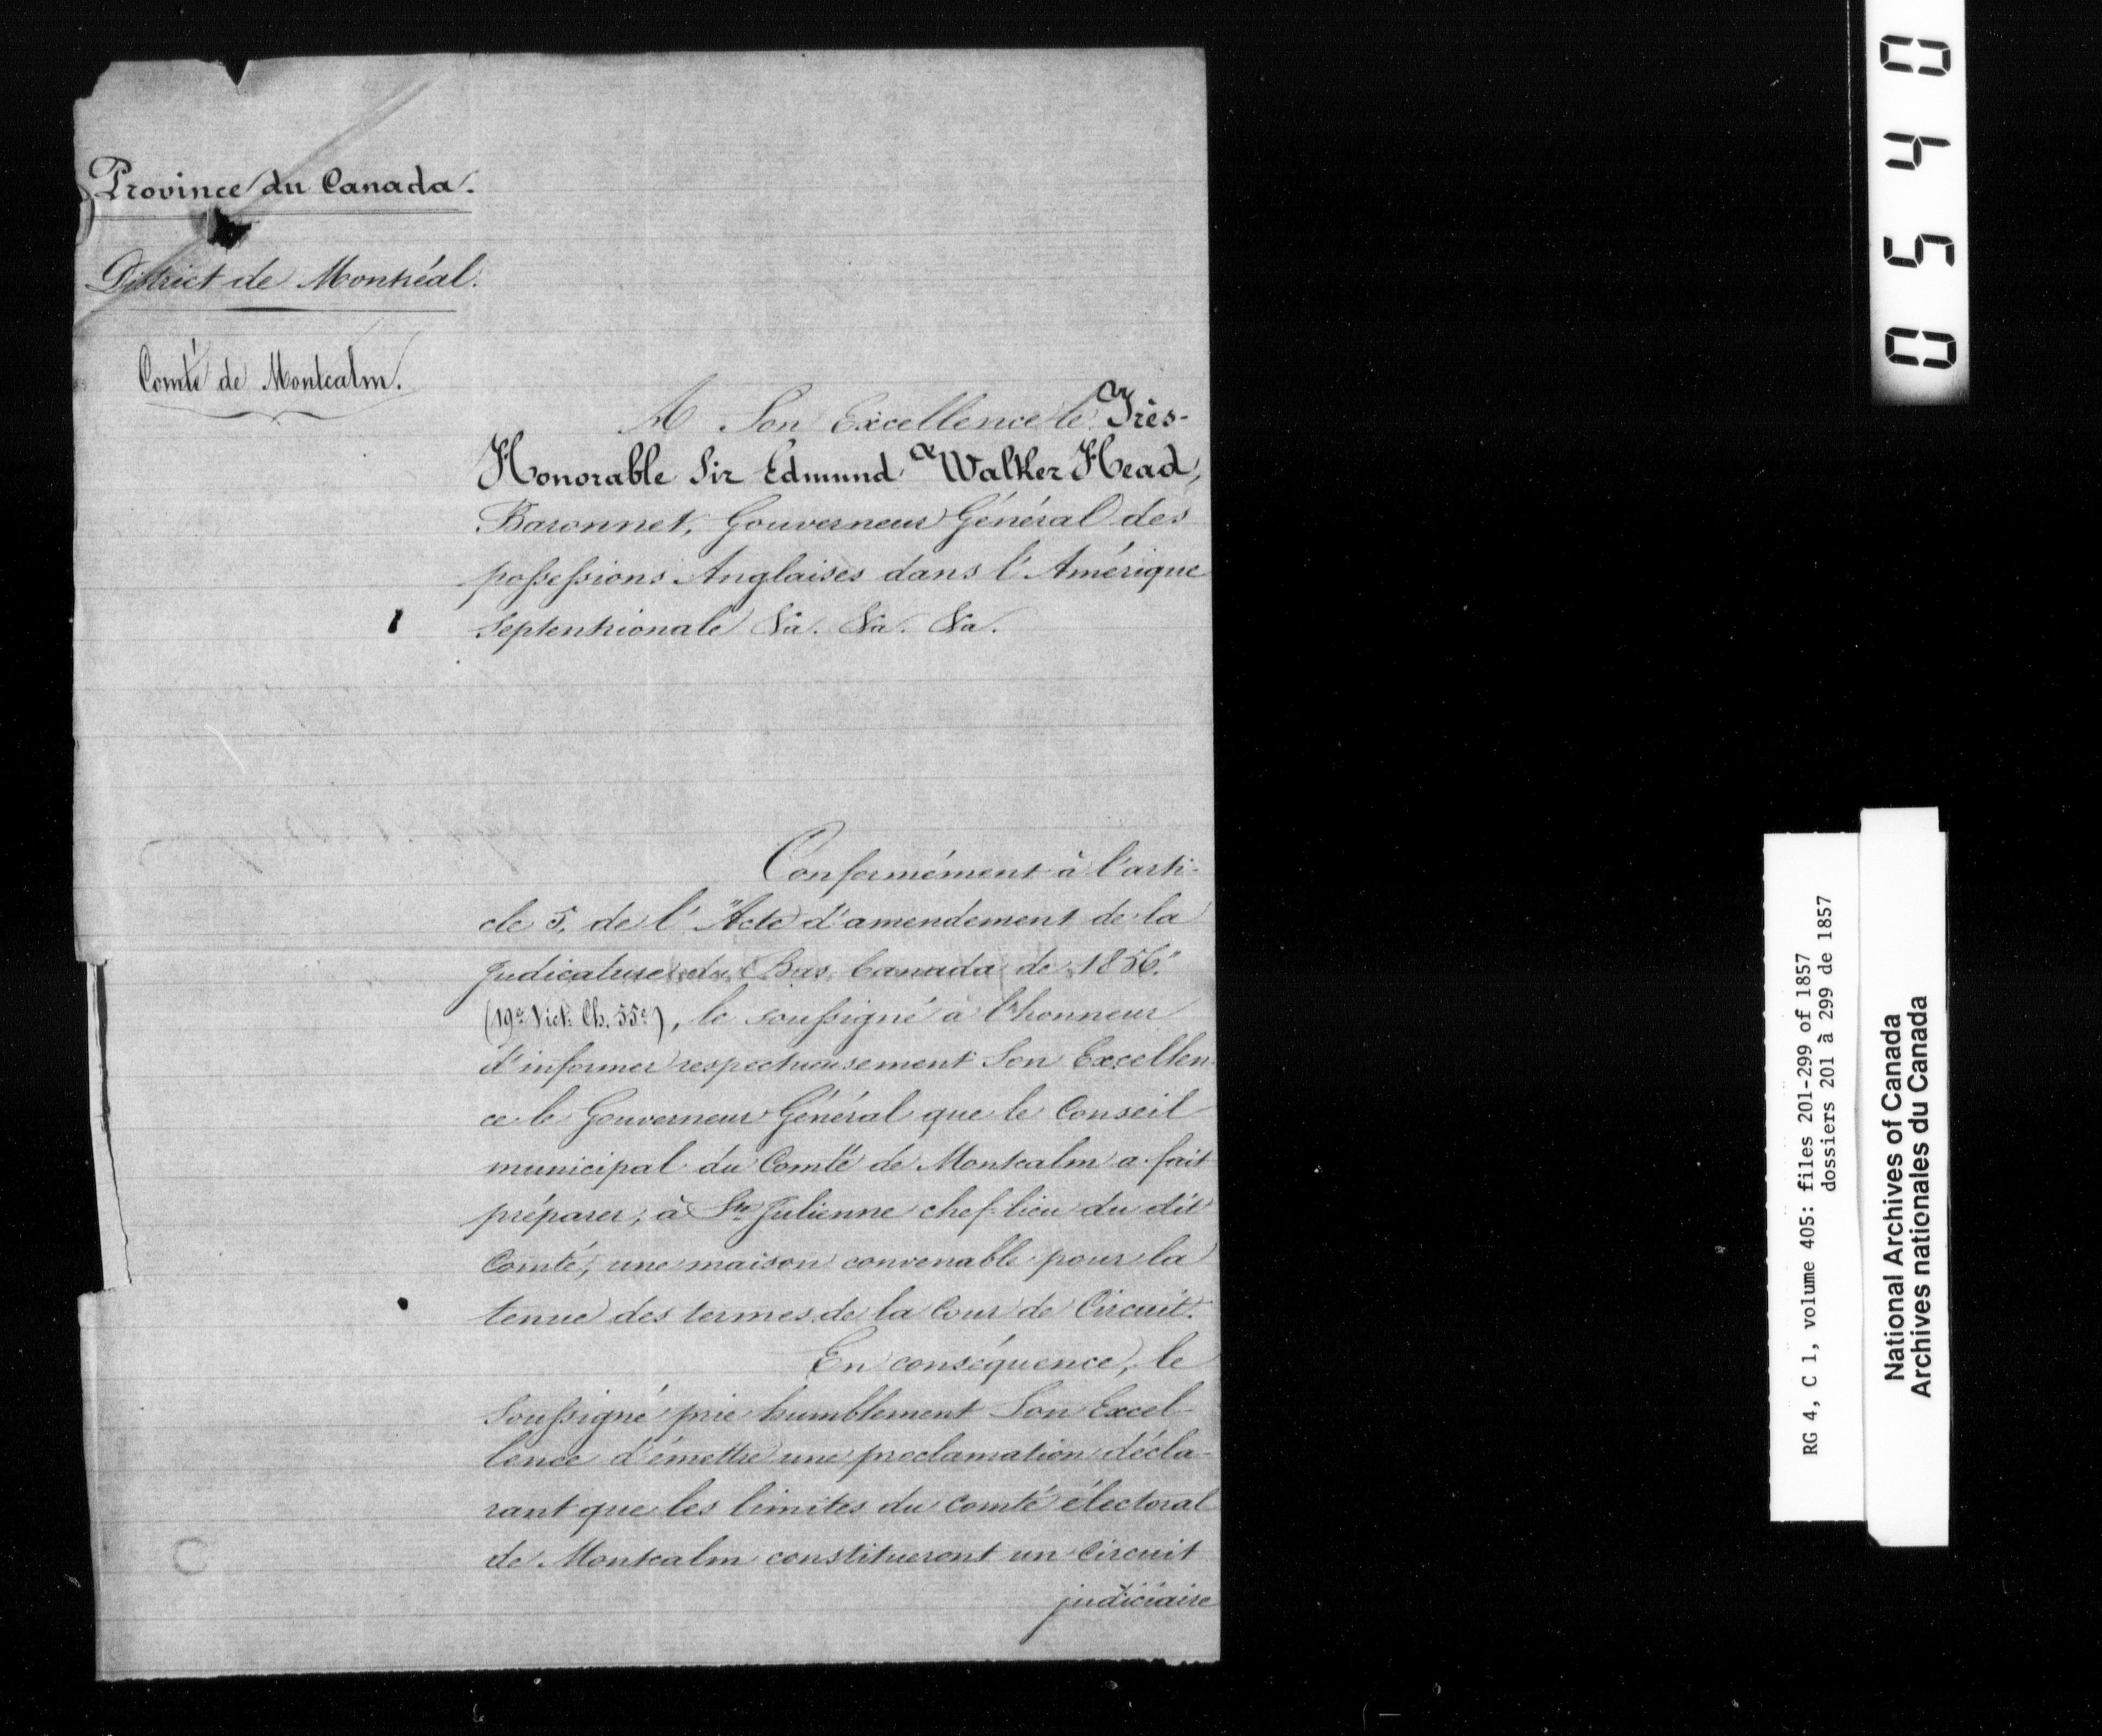 Province du Canada.
District de Montréal.
Comté de Montcalm.
A Son Excellence le Très-
Honorable Sir Edmund Walker Head,
Baronnet, Gouverneur Général des
possessions Anglaises dans l'Amérique
Septentrionale &a. &a. &a.
Conformément à l'arti-
cle 5, de l' "Acte d'amendement de la
Judicature du Bas Canada de 1856."
(19e Vict: Ch. 55e), le soussigné a l'honneur
d'informer respectueusement Son Excellen-
ce le Gouverneur Général que le Conseil
municipal du Comté de Montcalm a fait
préparer, à Ste Julienne chef-lieu du dit
Comté, une maison convenable pour la
tenue des termes de la Cour de Circuit.
En conséquence, le
Soussigné prie humblement Son Excel-
lence d'émettre une proclamation décla-
rant que les limites du comté électoral
de Montcalm constitueront un Circuit
judiciaire
0540
RG 4, C 1, volume 405: files 201-299 of 1857
dossiers 201 à 299 de 1857
National Archives of Canada
Archives nationales du Canada